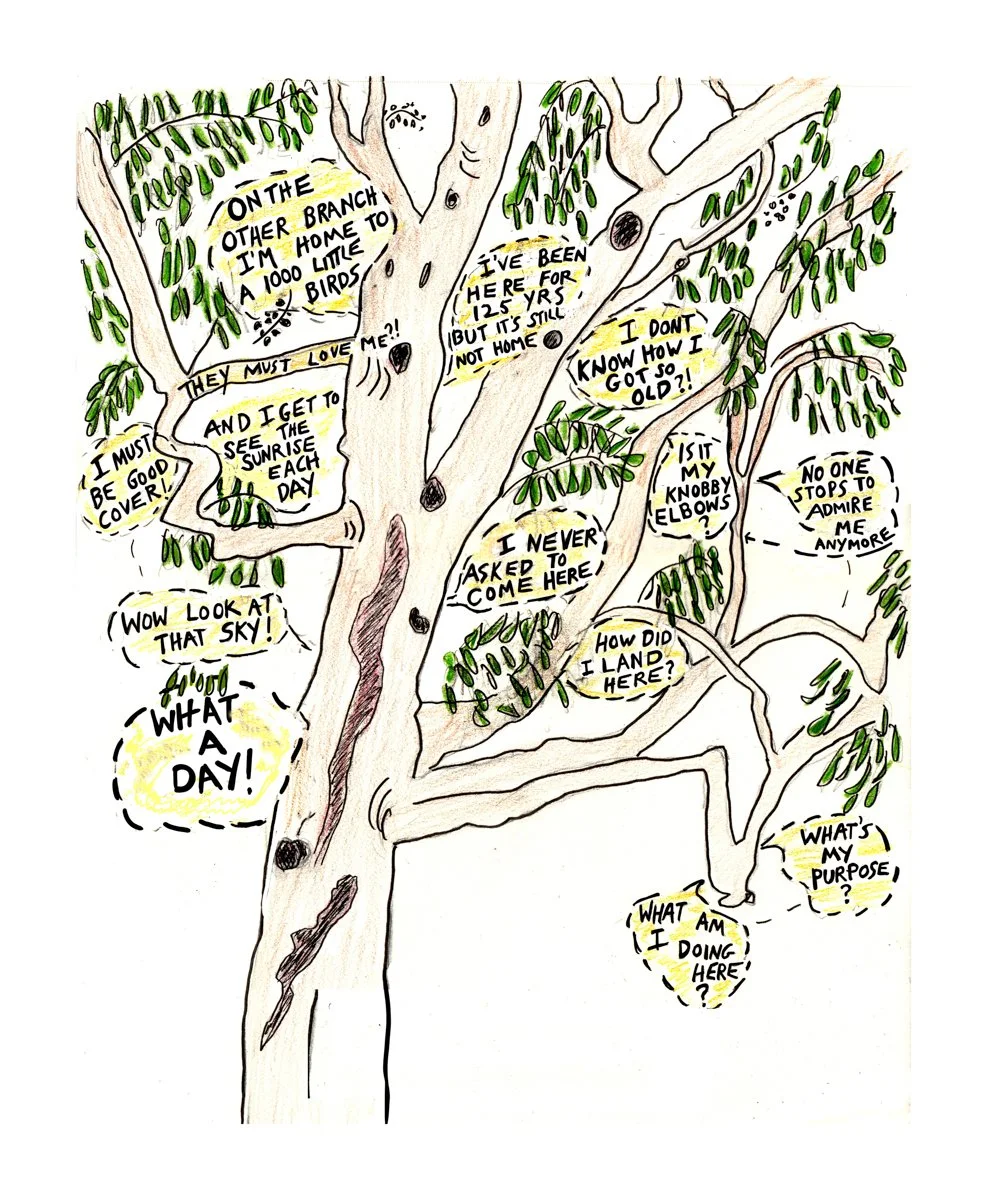 ON THE
OTHER BRANCH
I'M HOME TO
A 1000 LITTLE
BIRDS
THEY MUST LOVE ME?!
AND I GET TO
SEE THE
SUNRISE
EACH
DAY
I MUST
BE GOOD
COVER!
WOW LOOK AT
THAT SKY!
WHAT
A
DAY!
I'VE BEEN
HERE FOR
125 YRS
BUT IT'S STILL
NOT HOME
I DONT
KNOW HOW I
GOT SO
OLD?!
IS IT
MY
KNOBBY
ELBOWS
?
NO ONE
STOPS TO
ADMIRE
ME
ANYMORE
I NEVER
ASKED TO
COME HERE
HOW DID
I LAND
HERE?
WHAT'S
MY
PURPOSE
?
WHAT AM
I DOING
HERE
?